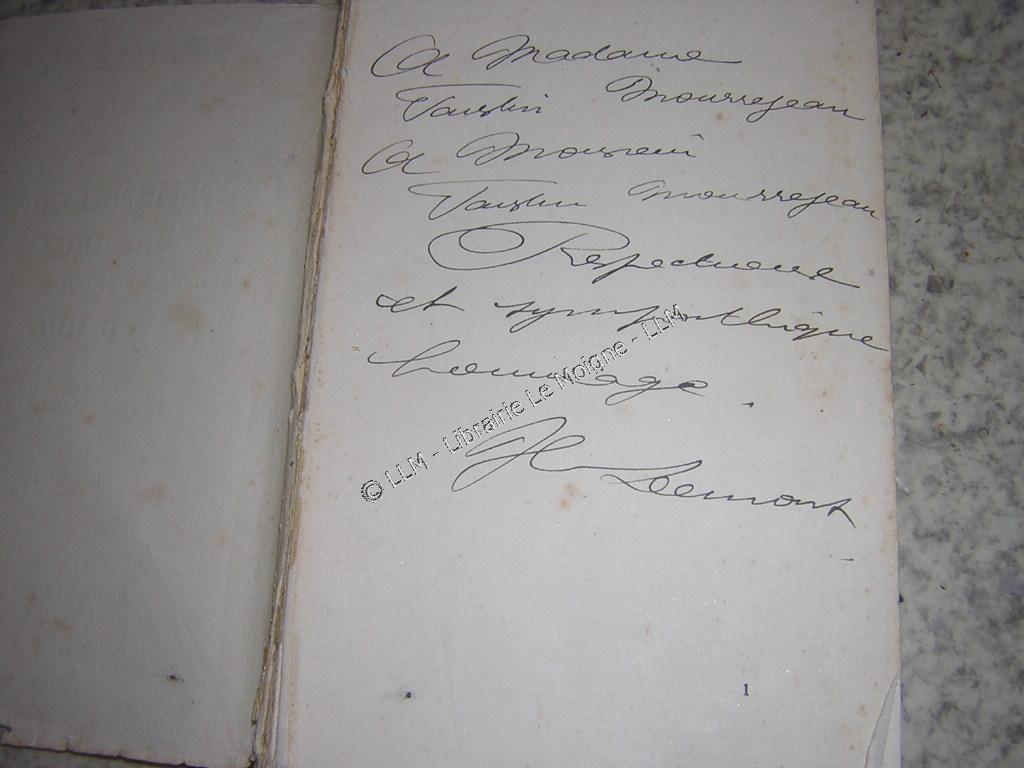 A Madame
Faustin Mourrejeau
A Monsieur
Faustin Mourrejeau
Respectueux
et sympathique
hommage.
Demont
© LLM - Librairie Le Moigne - LLM
1